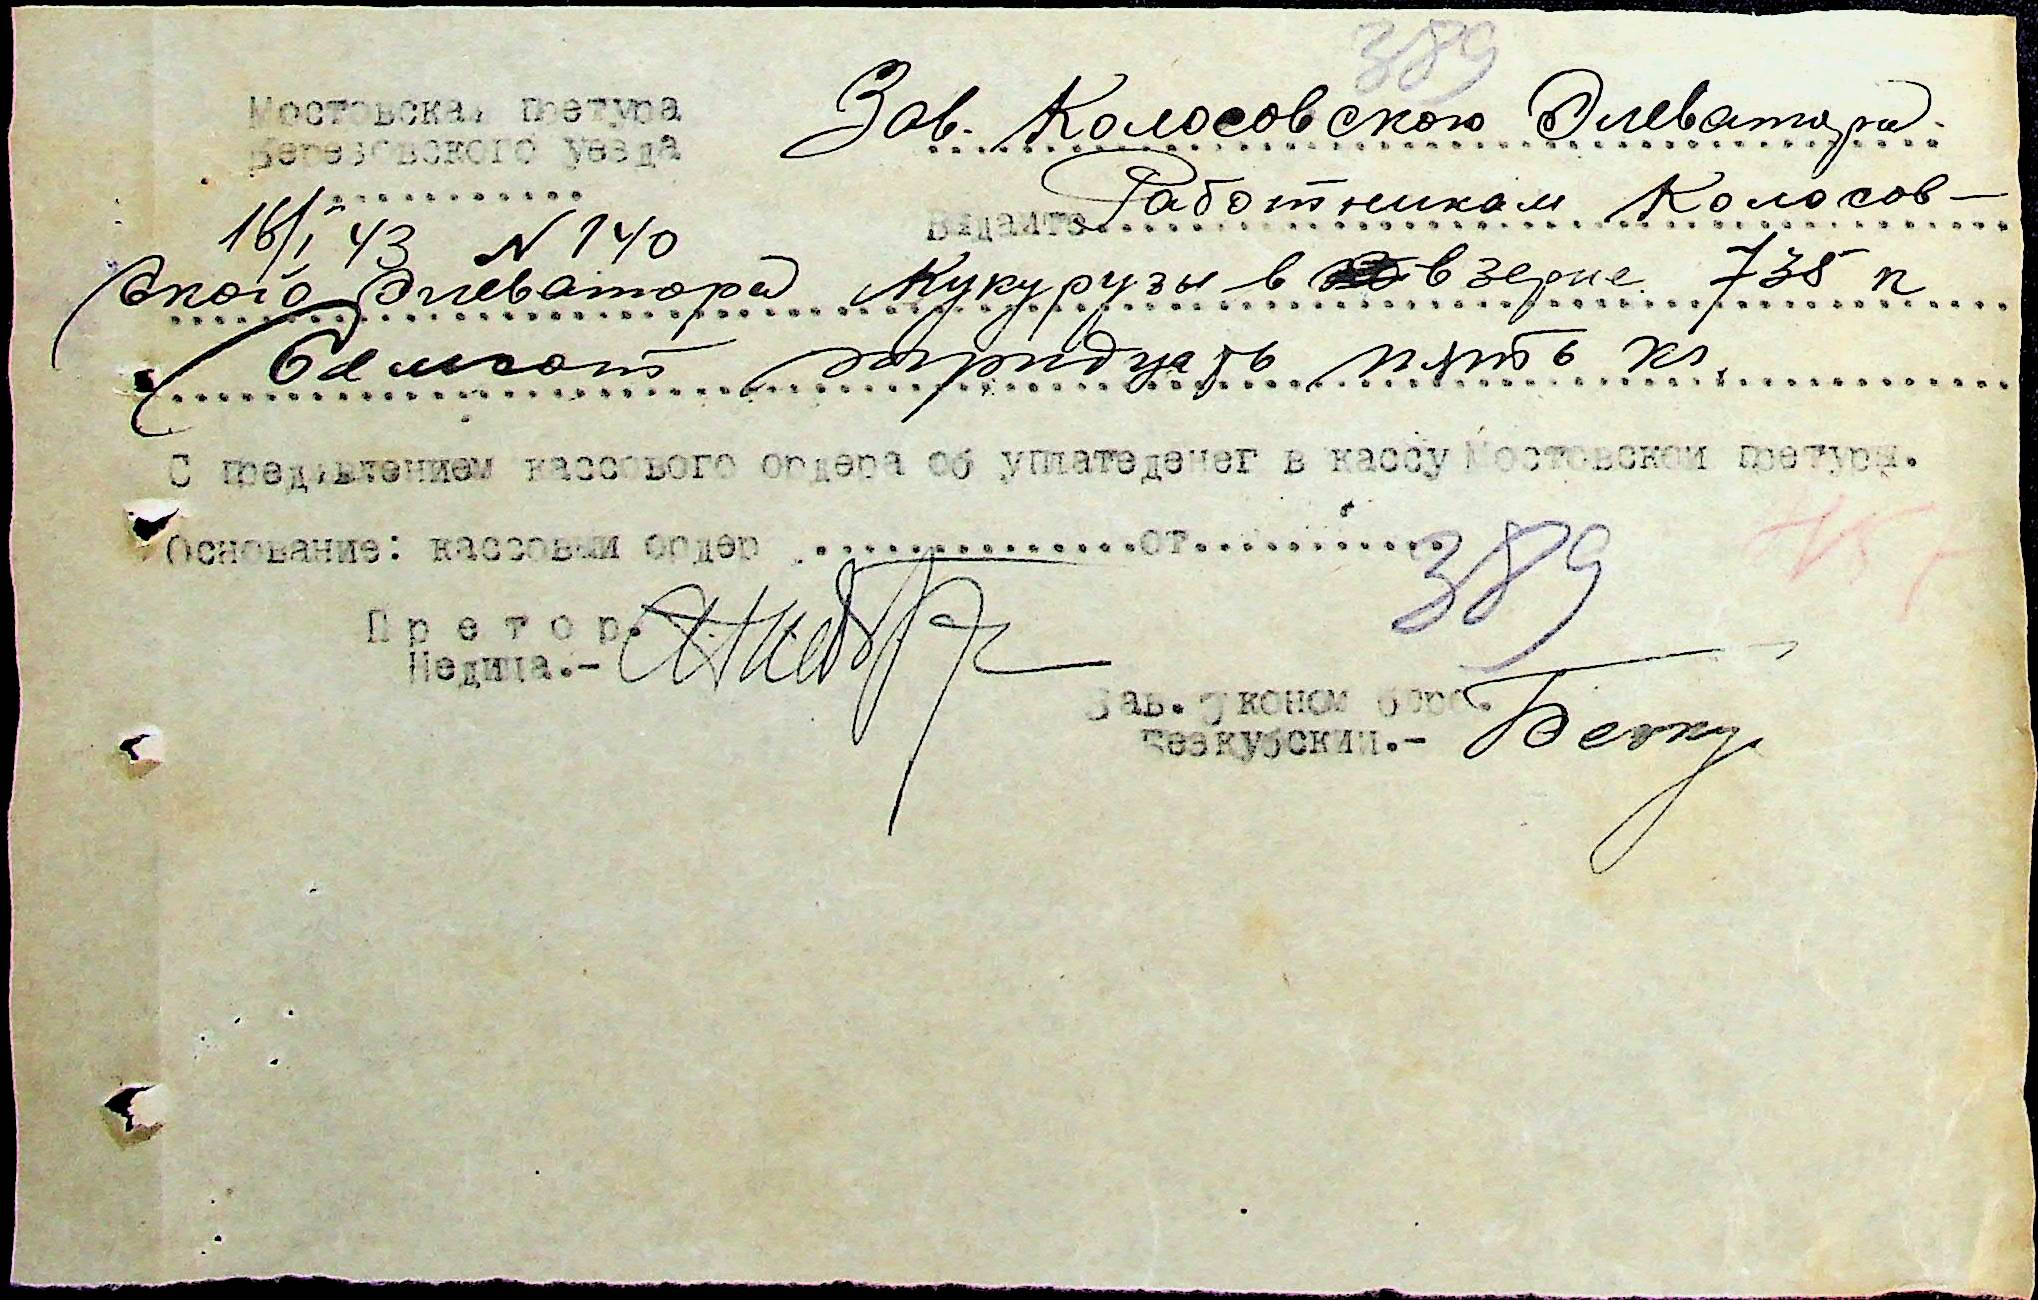 389
Мостовская претура
Березовского уезда
16/I 43 N 140
Зав. Колосовского Элеватора
Выдайте Работникам Колосов-
ского Элеватора Кукурузы в в зерне 735 к
Семьсот тридцать пять кг.
С предявлением кассового ордера об уплатеденег в кассу Мостовской претуры.
Основание: кассовый ордер ............от............
389
Претор.
Недица.-
Зав. Эконом бюро.
Безкубский.-